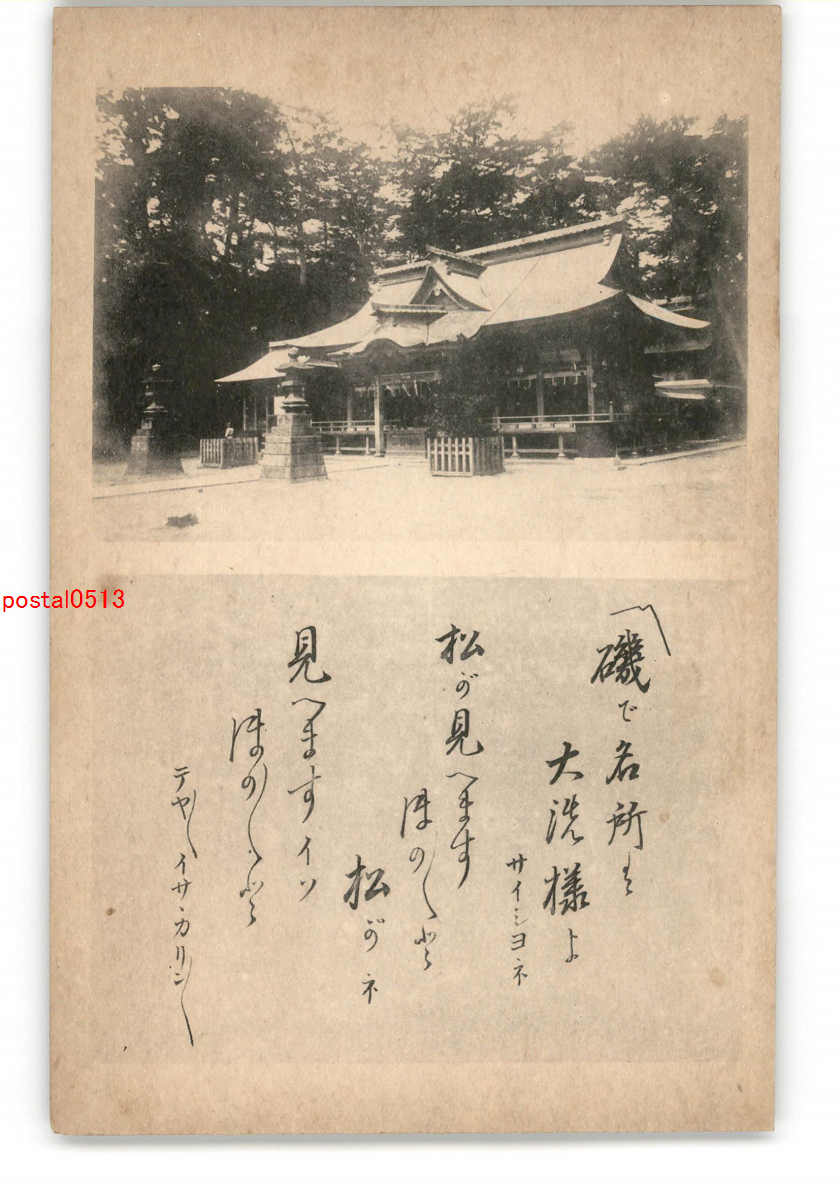 磯で名所は
大洗様よ
サイシヨネ
松が見へます
ほの〲と
松がネ
見へますイソ
ほの〲と
テヤ〲イサヽカリン〱
postal0513